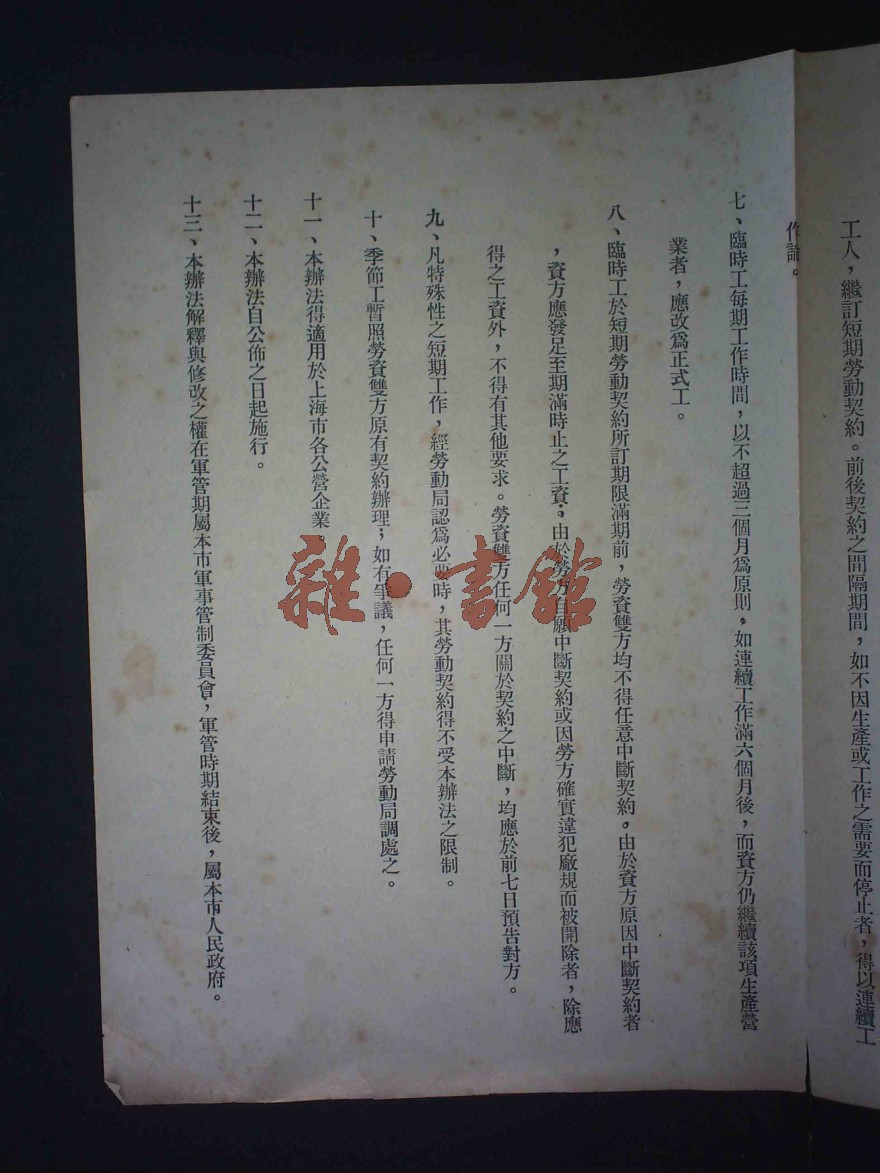 工人，繼訂短期勞動契約。前後契約之間隔期間，如不因生產或工作之需要而停止者，得以連續工
作論。
七、臨時工每期工作時間，以不超過三個月爲原則，如連續工作滿六個月後，而資方仍繼續該項生產營
業者，應改爲正式工。
八、臨時工於短期勞動契約所訂期限滿期前，勞資雙方均不得任意中斷契約。由於資方原因中斷契約者
，資方應發足至期滿時止之工資；由於勞方自願中斷契約或因勞方確實違犯廠規而被開除者，除應
得之工資外，不得有其他要求。勞資雙方任何一方關於契約之中斷，均應於前七日預告對方。
九、凡特殊性之短期工作，經勞動局認爲必要時，其勞動契約得不受本辦法之限制。
十、季節工暫照勞資雙方原有契約辦理；如有爭議，任何一方得申請勞動局調處之。
十一、本辦法得適用於上海市各公營企業。
十二、本辦法自公佈之日起施行。
十三、本辦法解釋與修改之權在軍管期屬本市軍事管制委員會，軍管時期結束後，屬本市人民政府。
雜·書館